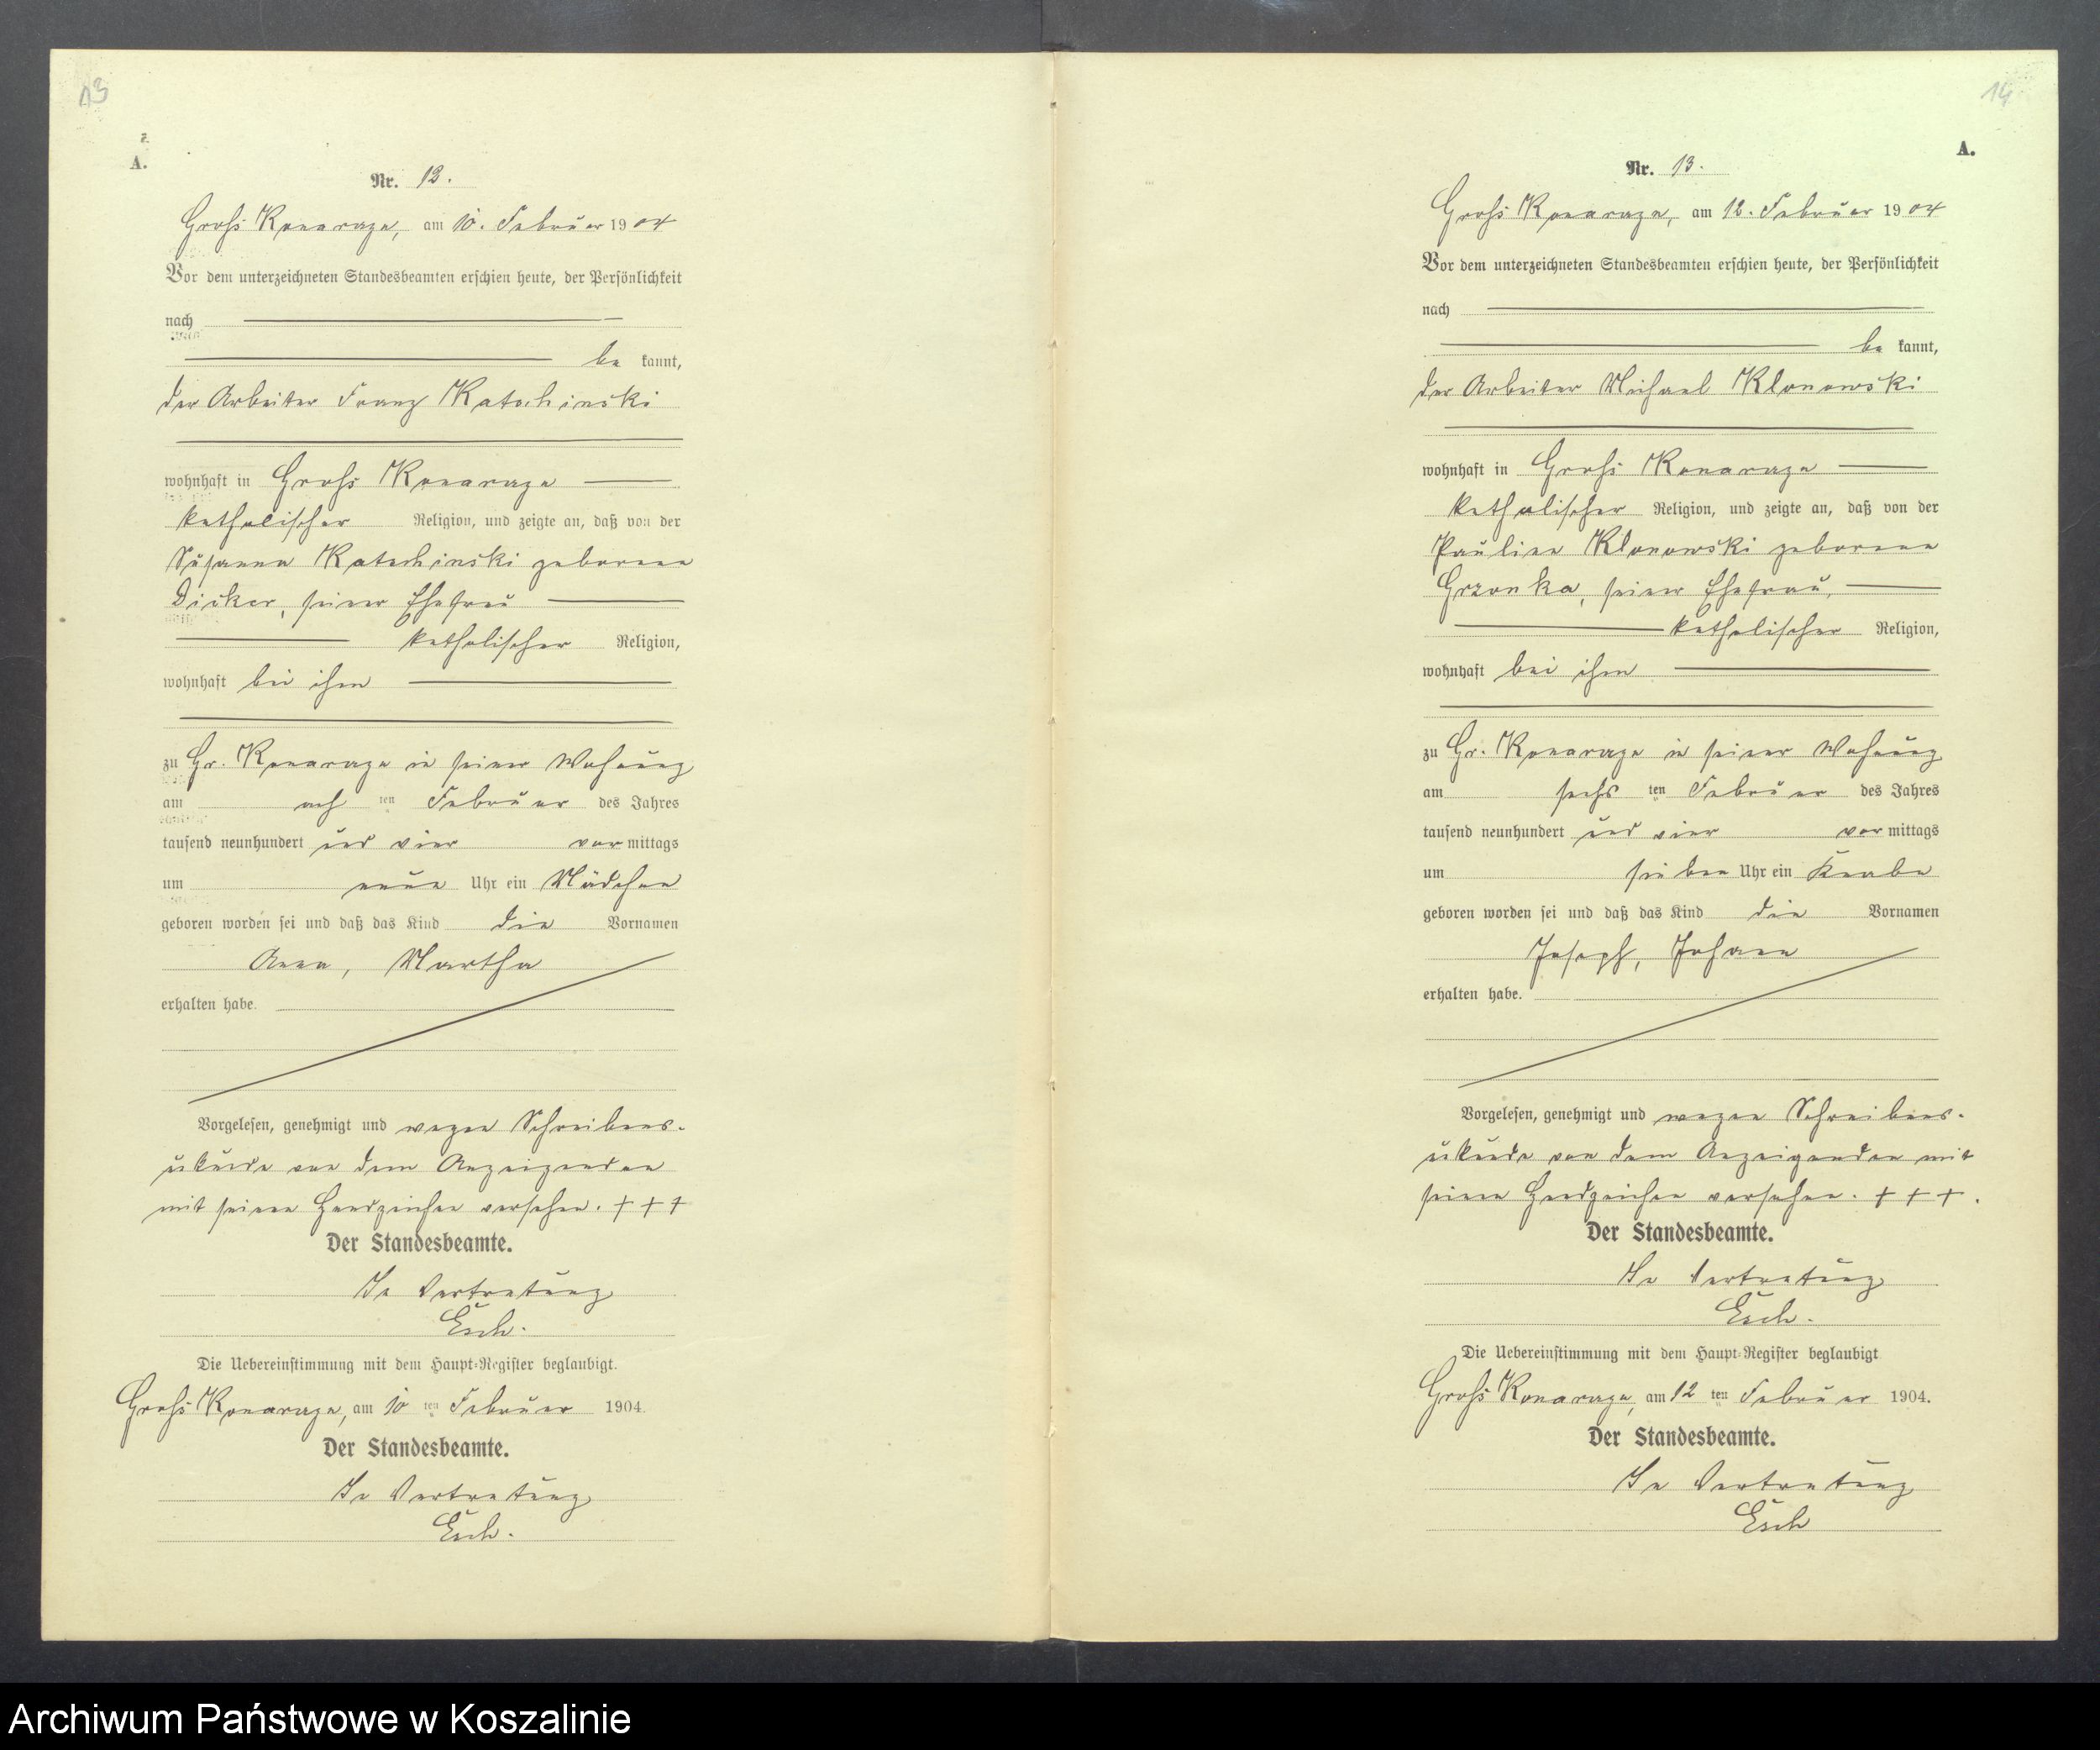 13
A.
Nr. 12.
Groß Konarzyn, am 10. Februar 1904
Vor dem unterzeichneten Standesbeamten erschien heute, der Persönlichkeit
nach
be kannt,
der Arbeiter Franz Katschinski
wohnhaft in Groß Konarzyn
katholischer Religion, und zeigte an, daß von der
Susanna Katschinski geborene
Dicker, seiner Ehefrau
katholischer Religion,
wohnhaft bei ihm
zu Gr. Konarzyn in seiner Wohnung
am ach ten Februar des Jahres
tausend neunhundert und vier vor mittags
um neun Uhr ein Mädchen
geboren worden sei und daß das Kind die Vornamen
Anna, Martha
erhalten habe.
Vorgelesen, genehmigt und wegen Schreibens-
unkunde von dem Anzeigenden
mit seinen Handzeichen versehen. + + +
Der Standesbeamte.
In Vertretung
Esch.
Die Uebereinstimmung mit dem Haupt-Register beglaubigt.
Groß Konarzyn, am 10 ten Februar 1904.
Der Standesbeamte.
In Vertretung
Esch.
14
A.
Nr. 13.
Groß Konarzyn, am 12. Februar 1904
Vor dem unterzeichneten Standesbeamten erschien heute, der Persönlichkeit
nach
be kannt,
der Arbeiter Michael Klonowski
wohnhaft in Groß Konarzyn
katholischer Religion, und zeigte an, daß von der
Pauline Klonowski geborene
Grzonka, seiner Ehefrau,
katholischer Religion,
wohnhaft bei ihm
zu Gr. Konarzyn in seiner Wohnung
am sechs ten Februar des Jahres
tausend neunhundert und vier vor mittags
um sieben Uhr ein Knabe
geboren worden sei und daß das Kind die Vornamen
Joseph, Johann
erhalten habe.
Vorgelesen, genehmigt und wegen Schreibens-
unkunde von dem Anzeigenden mit
seinen Handzeichen versehen. + + +.
Der Standesbeamte.
In Vertretung
Esch.
Die Uebereinstimmung mit dem Haupt-Register beglaubigt
Groß Konarzyn, am 12 ten Februar 1904.
Der Standesbeamte.
In Vertretung
Esch
Archiwum Państwowe w Koszalinie